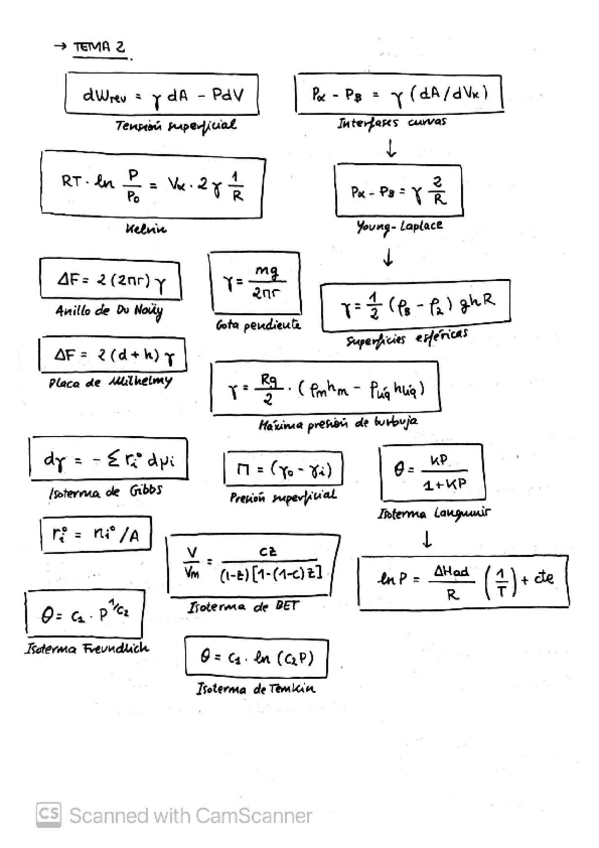 → TEMA 2.
dWrev = γ dA - PdV
Tensión superficial
Pα - Pβ = γ (dA/dVα)
Interfases curvas
↓
RT · ln P/P₀ = Vα · 2 γ 1/R
Kelvin
Pα - Pβ = γ 2/R
Young-Laplace
↓
ΔF = 2 (2πr) γ
Anillo de Du Noüy
γ = mg/2πr
Gota pendiente
γ = 1/2 (ρβ - ρ₂) ghR
Superficies esféricas
ΔF = 2 (d + h) γ
Placa de Wilhelmy
γ = Rg/2 · (ρmhm - ρlíq hlíq)
Máxima presión de burbuja
dγ = - Σ Γi° dμi
Isoterma de Gibbs
Π = (γ₀ - γi)
Presión superficial
θ = KP/1+KP
Isoterma Langmuir
↓
Γi° = ni°/A
V/Vm = CZ/(1-z)[1-(1-c)z]
Isoterma de BET
ln P = ΔHad/R (1/T) + cte
θ = C₁ · P^1/C₂
Isoterma Freundlich
θ = C₁ · ln (C₂P)
Isoterma de Temkin
CS Scanned with CamScanner